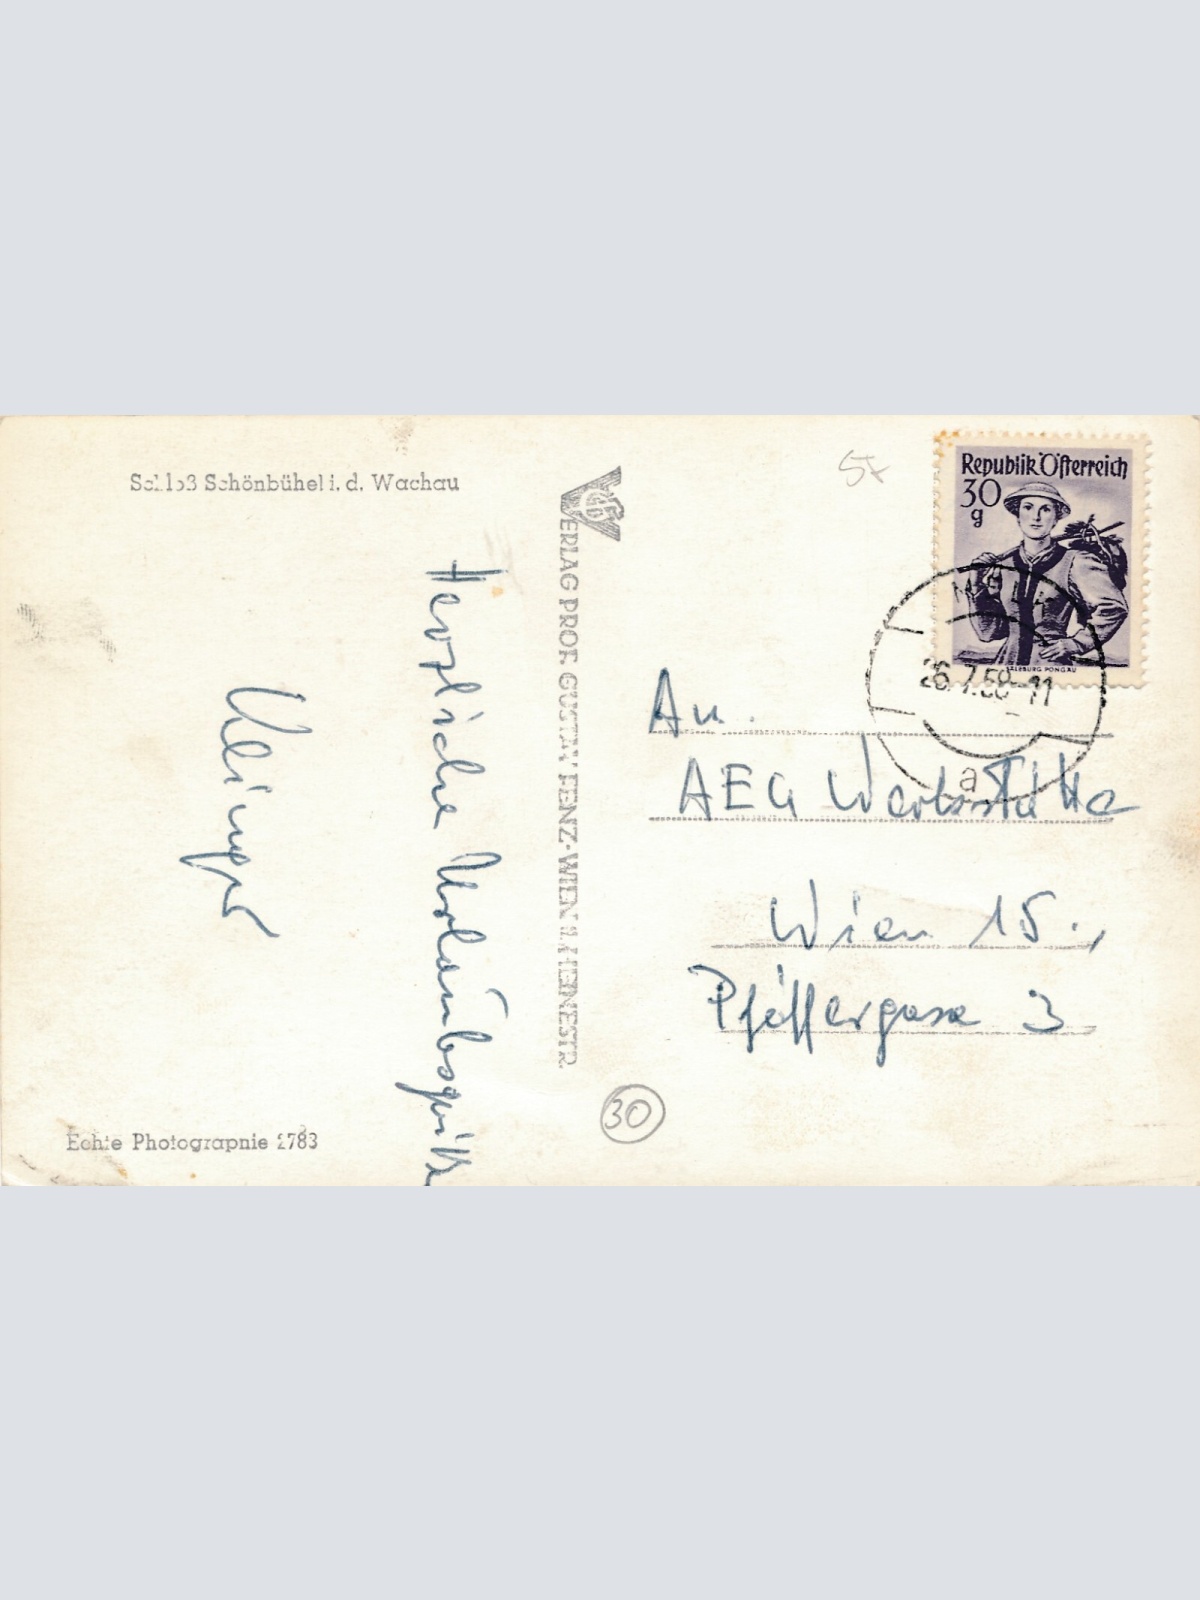 Schloß Schönbühel i. d. Wachau
Herzliche Urlaubsgrüße
VERLAG PROF. GUSTAV FENZ-WIEN II. HEINESTR.
Echte Photographie 2783
5x
Republik Österreich
30
g
SALZBURG PONGAU
26.7.58-11
a
An
AEG Werkstätte
Wien 15.,
Pfeiffergasse 3
30